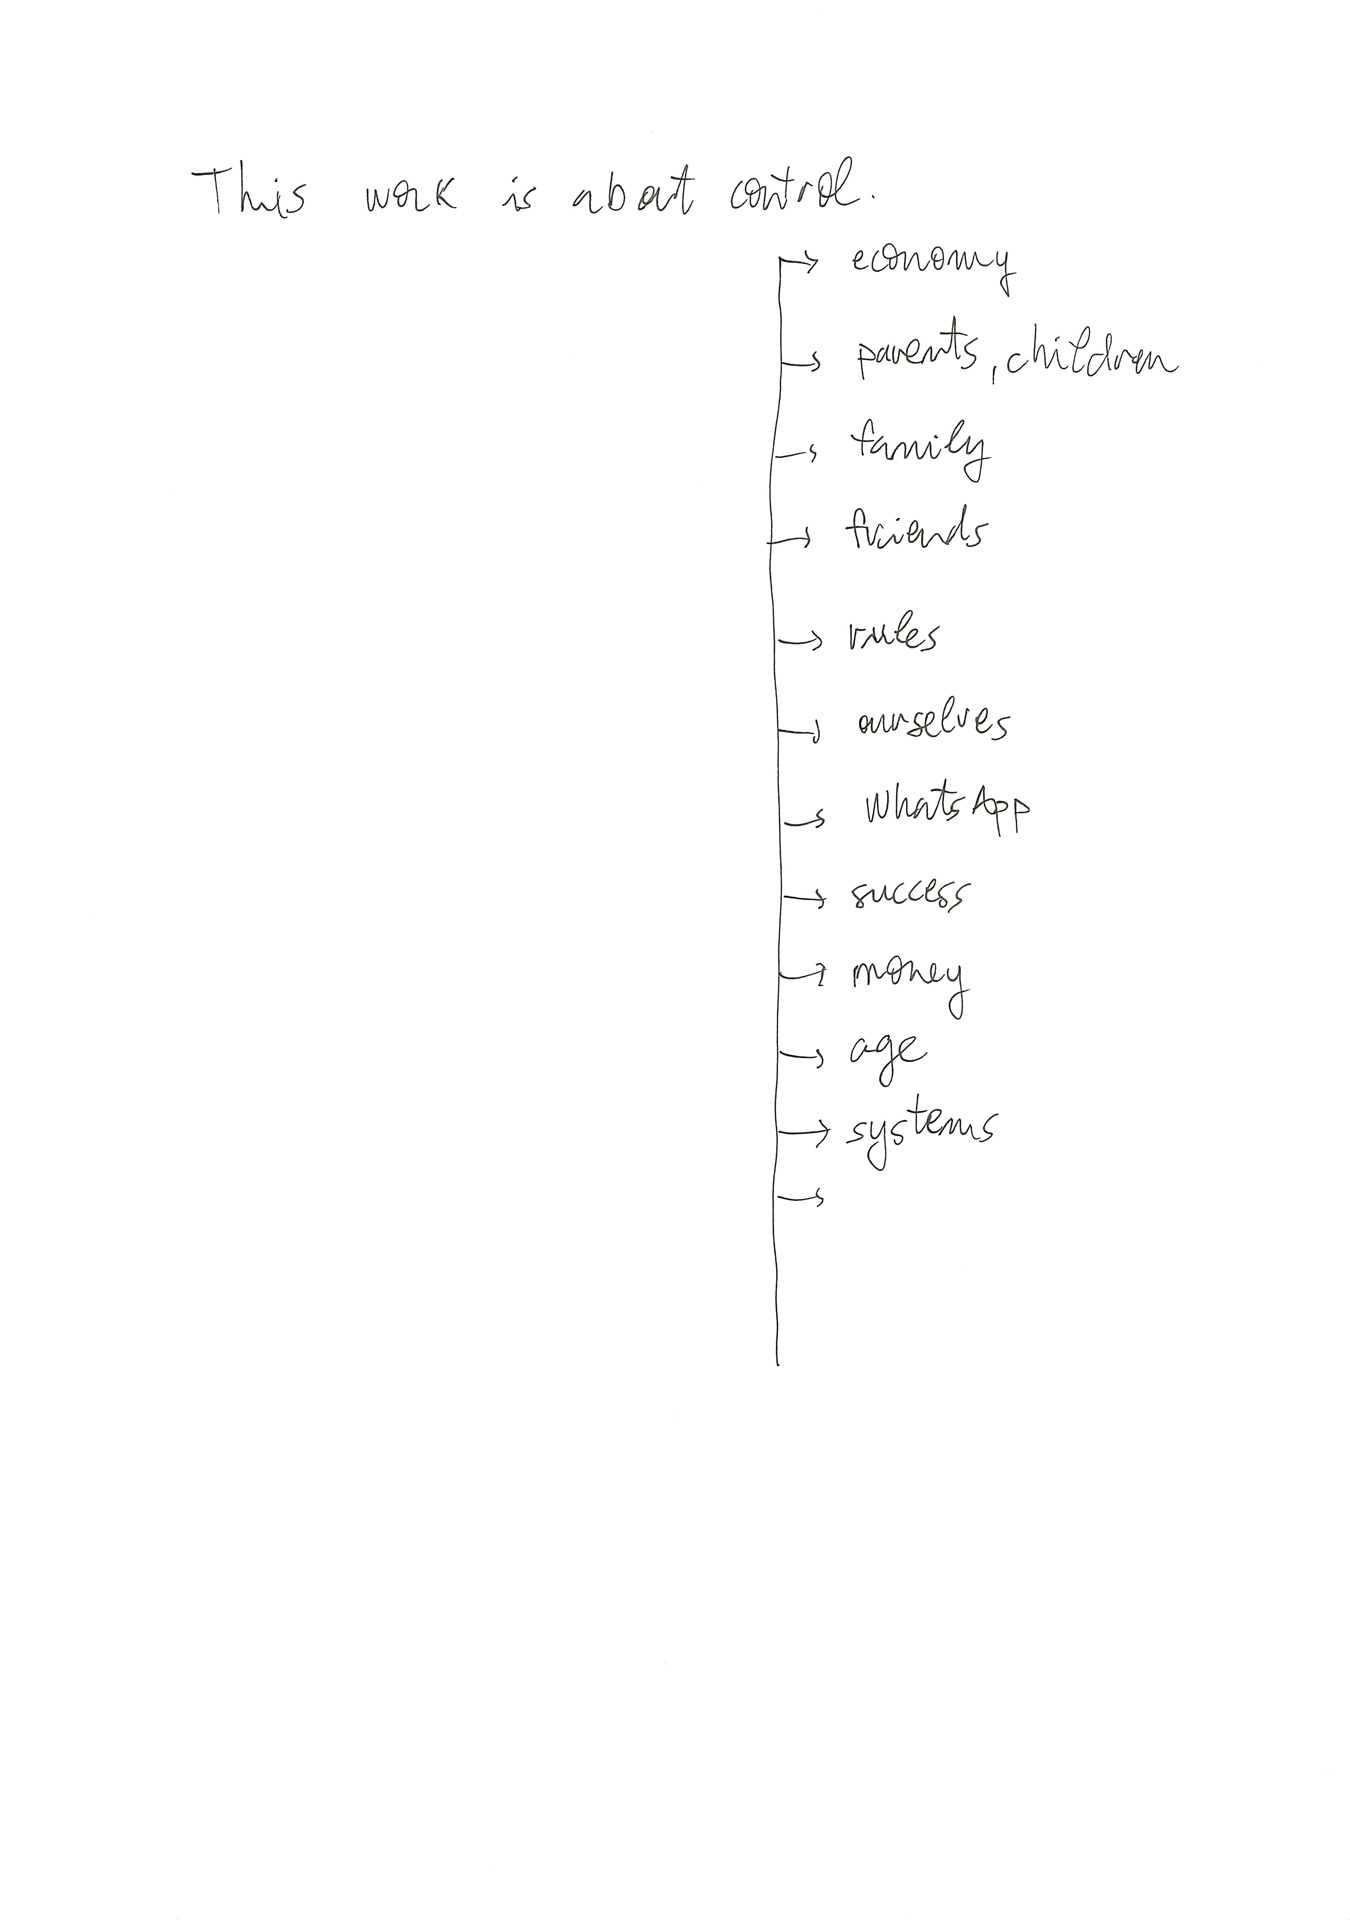 This work is about control.
→ economy
→ parents, children
→ family
→ friends
→ rules
→ ourselves
→ WhatsApp
→ success
→ money
→ age
→ systems
→